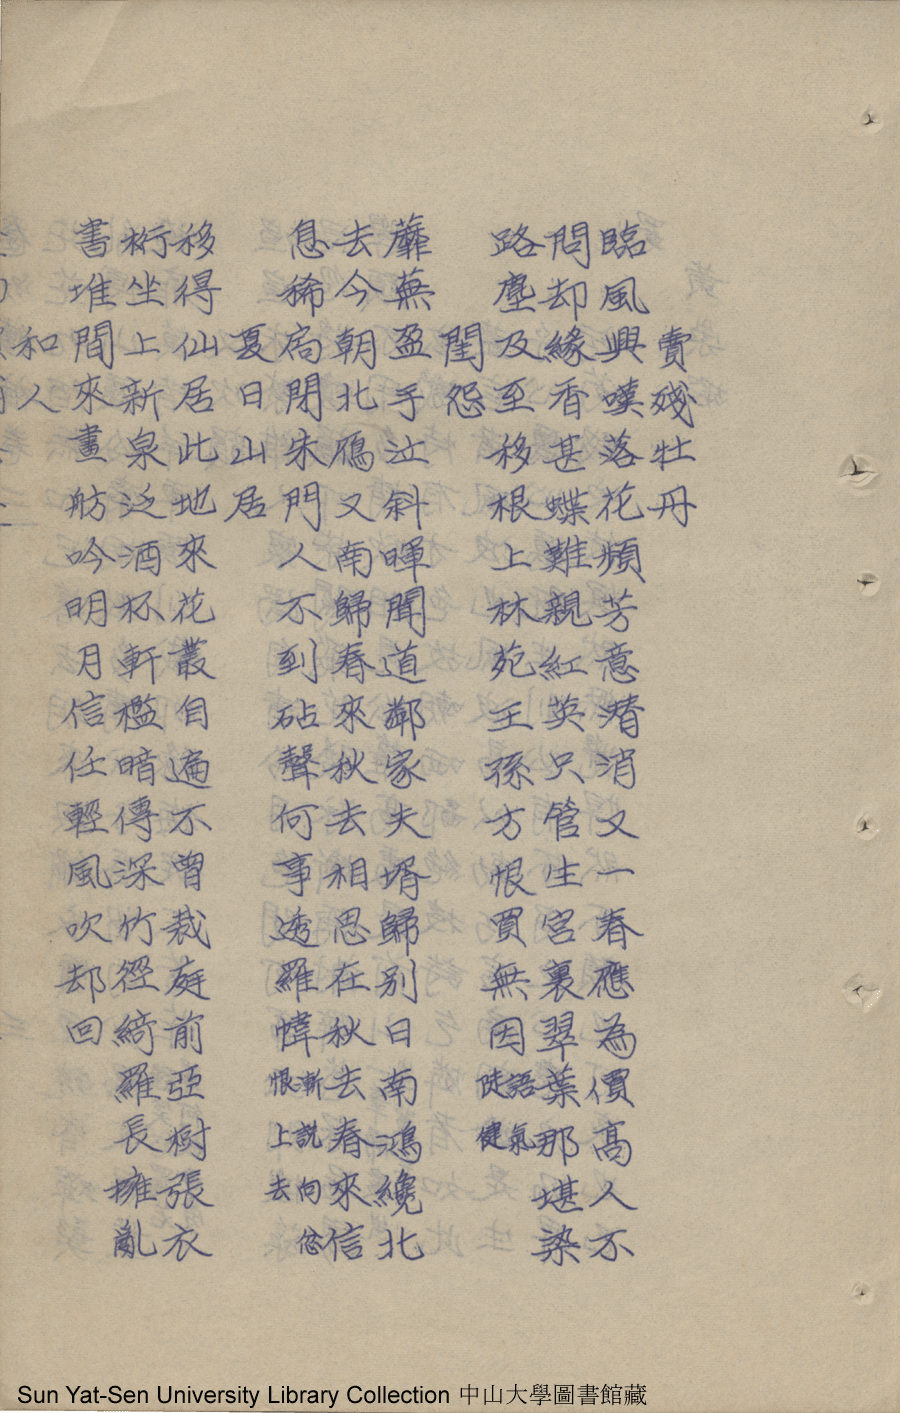 賣殘牡丹
臨風興嘆落花頻芳意潛消又一春應為價高人不
問却緣香甚蝶難親紅英只管生宮裏翠葉那堪染
路塵及至移根上林苑王孫方恨買無因
語氣
徒健
閨怨
蘼蕪盈手泣斜暉聞道鄰家夫壻歸别日南鴻纔北
去今朝北雁又南歸春來秋去相思在秋去春來信
息稀扃閉朱門人不到砧聲何事透羅幃
漸說向悠
恨上去
夏日山居
移得仙居此地來花叢自遍不曾裁庭前亞樹張衣
桁坐上新泉泛酒杯軒檻暗傳深竹徑綺羅長擁亂
書堆間來畫舫吟明月信任輕風吹却回
和人
Sun Yat-Sen University Library Collection 中山大學圖書館藏